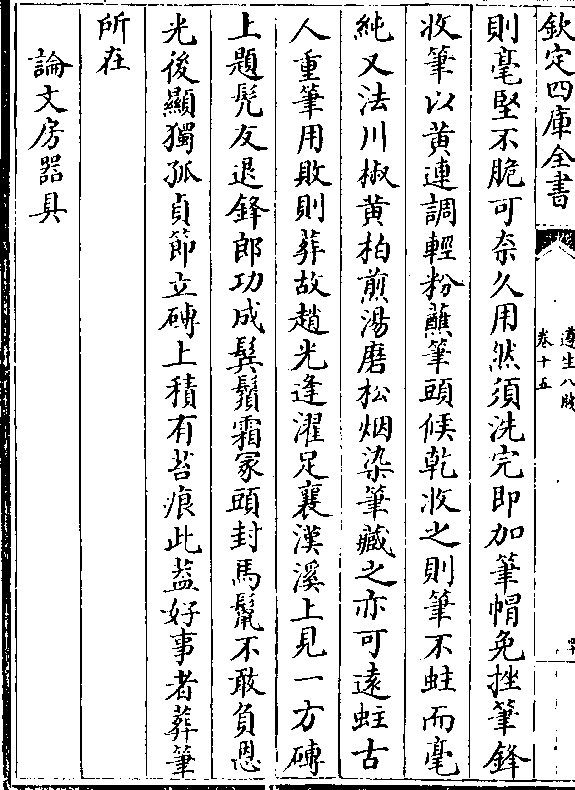 欽定四庫全書
遵生八牋
卷十五
則毫堅不脆可奈久用然須洗完即加筆帽免挫筆鋒
收筆以黄連調輕粉蘸筆頭候乾收之則筆不蛀而毫
純又法川椒黄柏煎湯磨松烟染筆藏之亦可遠蛀古
人重筆用敗則葬故趙光逢濯足襄漢溪上見一方磚
上題髠友退鋒郎功成鬂鬚霜冢頭封馬鬛不敢負恩
光後顯獨孤貞節立磚上積有苔痕此葢好事者葬筆
所在
論文房器具